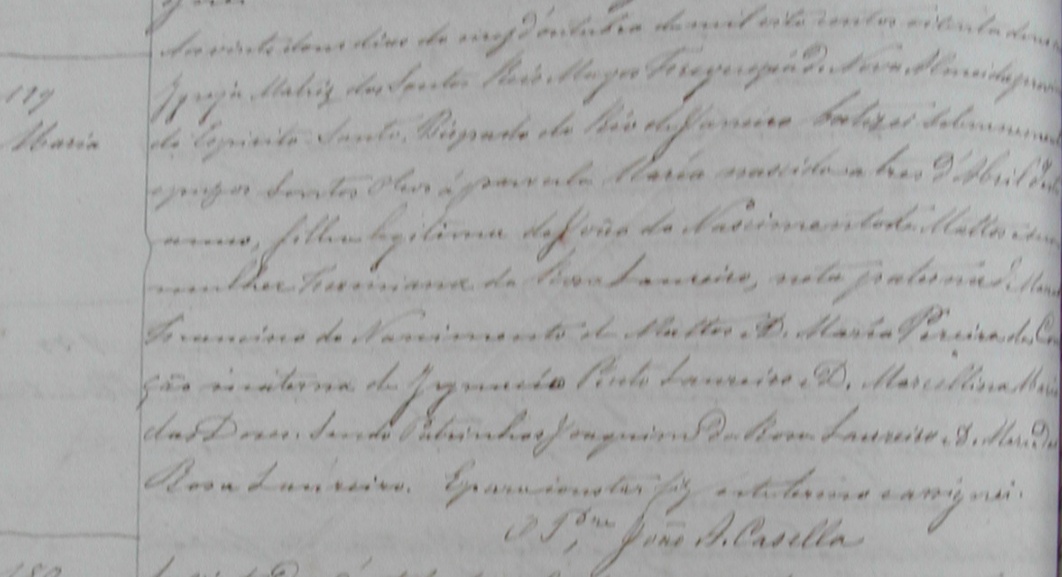 gnei.
Aos vinte dous dias do mez d'outubro de mil oito centos oitenta
Igreja Matriz dos Santos Reis Magos Freguezia de Nova Almeida
119
do Espirito Santo, Bispado do Rio de Janeiro batizei Solemnemen
Maria
e puz os Santos Oleos á parvula Maria nascida a tres d'Abril
anno, filha legitima de João do Nascimento de Mattos e sua
mulher da Roza Laureiro, neta paterna de
Francisco do Nascimento de Mattos e D. Maria Pereira da Con
ção e materna de Ignacio Pinto Laureiro e D. Marcellina Maria
das Dores. Sendo Padrinhos Joaquim da Rosa Laureiro e D. Maria da
Rosa Laureiro. E para constar fiz este termo e assignei.
O João A. Casella